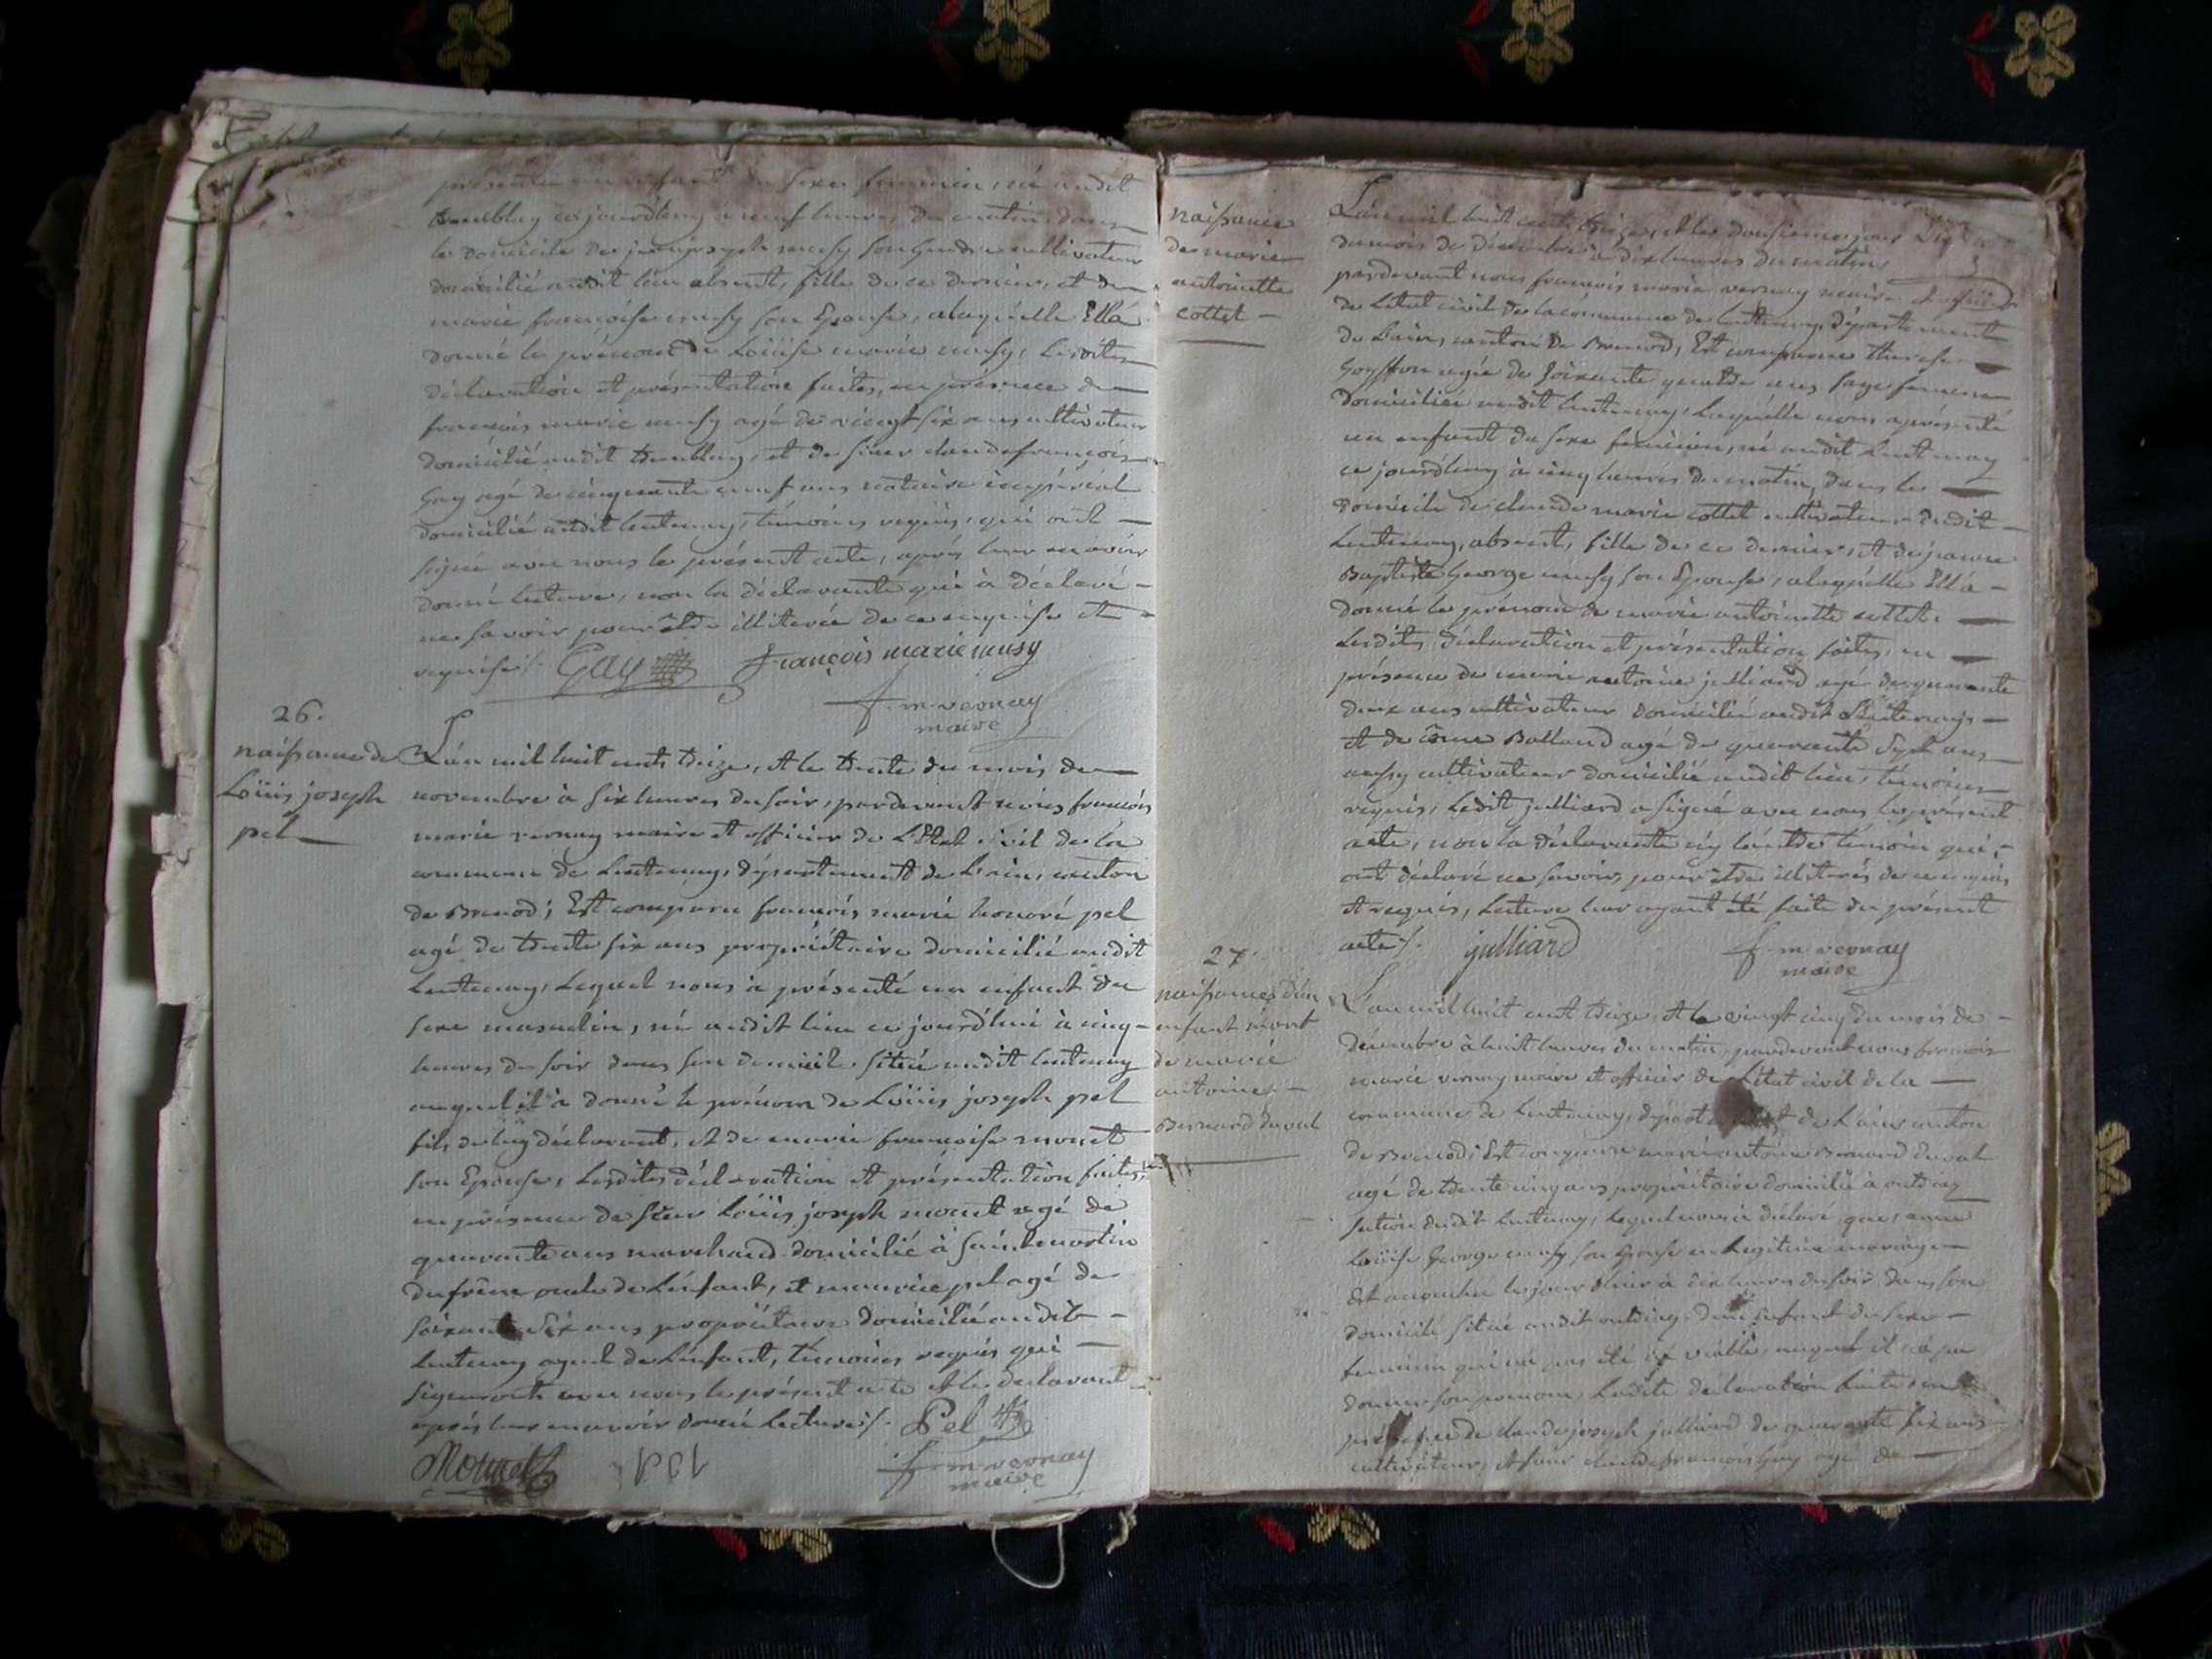 présenté un enfant du sexe feminin, né audit
tremblay cejourdhuy à neuf heures du matin dans
le domicile de jean joseph musy son gendre cultivateur
domicilié audit lieu absent, fille de ce dernier, et de
marie françoise musy son Epouse, alaquelle Ella
donné le prénom de Loüise marie musy, Lesdites
déclaration et présentation faites, en présence de
francois marie musy agé de vingt six ans cultivateur
domicilié audit tremblay, et de sieur claude françois
Gay agé de cinquante neuf ans notaire impérial
domicilié audit lentenay, témoins requis, qui ont
signé avec nous le présent acte, après leur en avoir
donné lecture, non la déclarante qui à déclaré
ne savoir pour être illiterée de ce enquise et
requise /. Gay François marie musy
f. m. vernay
maire
26.
naissance de
Loüis joseph
pel
L'an mil huit cents treize, et le trente du mois de
novembre à six heures du soir, pardevant nous francois
marie vernay maire et officier de L'Etat civil de la
commune de Lentenay, département de Lain, canton
de Brenod; Est comparu francois marie honoré pel
agé de trente six ans propriétaire domicilié audit
Lentenay, Lequel nous à présenté un enfant du
sexe masculin, né audit lieu ce jourd'hui à cinq
heures du soir dans son domicile situé audit lentenay
auquel il à donné le prénom de Loüis joseph pel
fils de luy déclarant, et de marie francoise monet
son Epouse, Lesdites déclaration et présentation faites,
en présence de sieur Loüis joseph monet agé de
quarante ans marchand domicilié à saint martin
dufrêne oncle de L'enfant, et maurice pel agé de
soixante six ans propriétaire domicilié audit
Lentenay ayeul de L'enfant, témoins requis qui
signeront avec nous le présent acte et le declarant
après leur en avoir donné lecture /. Pel
Monnet pel f. m. vernay
maire
naissance
de marie
antoinette
cottet
L'an mil huit cents treize, et le douzieme jour
du mois de décembre à dix heures du matin,
pardevant nous francois marie vernay maire et officier
de Letat civil de la commune de lentenay, département
de Lain, canton de Brenod, Est comparue therese
Goyffon agée de soixante quatre ans sage femme
domiciliée audit lentenay, Laquelle nous aprésenté
un enfant du sexe feminin, né audit Lentenay
ce jourdhuy à cinq heures du matin, dans le
domicile de claude marie cottet cultivateur dudit
Lentenay, absent, fille de ce dernier, et de jeanne
Baptiste George musy son Epouse, alaquelle Ellà
donné le prénom de marie antoinette cottet.
Lesdites déclaration et présentation faites, en
présence de marie antoine julliard agé de quarante
deux ans cultivateur domicilié audit Lentenay
et de côme Balland agé de quarante sept ans
aussy cultivateur domicilié audit lieu, témoins
requis, Ledit julliard a signé avec nous le présent
acte, non la déclarante ny l'autre témoin qui
ont déclaré ne savoir, pour être illiterés de ce enquis
et requis, Lecture leur ayant été faite du présent
acte /. julliard f. m. vernay
maire
27.
naissances d'un
enfant mort
de marie
antoine
Bernard duval
L'an mil huit cent treize, et le vingt cinq du mois de
décembre à huit heures du matin, pardevant nous francois
marie vernay maire et officier de L'état civil de la
commune de Lentenay, département de L'ain canton
de Brenod; Est comparu marie antoine Bernard duval
agé de trente cinq ans propriétaire domicilié à outriaz
section dudit Lentenay, Lequel nous à déclaré que, anne
Loüise George musy son Epouse en Legitime mariage
Est accouchée le jour d'hier à dix heures du soir dans son
domicile situé audit outriaz d'un enfant du sexe
feminin qui n'a pas été viable, auquel il n'a pu
donner son prenom, Ladite déclaration faite en
présence de claude joseph julliard de quarante six ans
cultivateur, et sieur claude francois Gay agé de